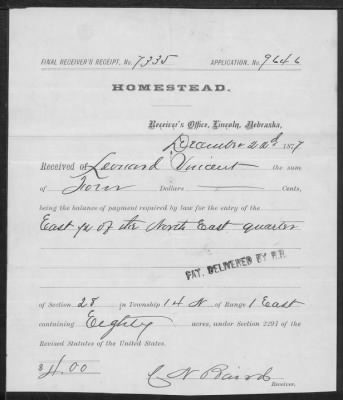 FINAL RECEIVER'S RECEIPT, No. 7335 APPLICATION, No. 9646
HOMESTEAD.
Receiver's Office, Lincoln, Nebraska,
December 22d 1877
Received of Leonard Vincent the sum
of Four Dollars Cents,
being the balance of payment required by law for the entry of the
East ½ of the North East quarter
PAT. DELIVERED BY R.R.
of Section 28 in Township 14 N of Range 1 East
containing Eighty acres, under Section 2291 of the
Revised Statutes of the United States.
$ 4.00
Receiver.